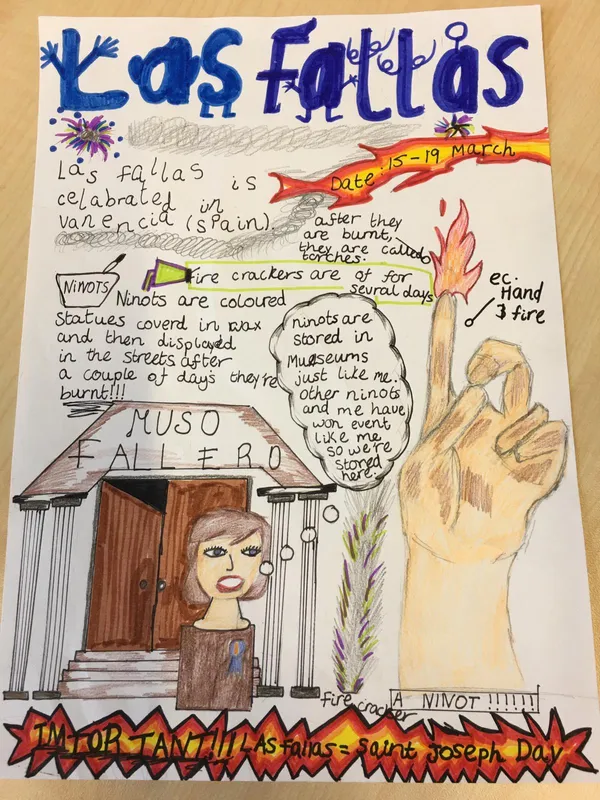 Las Fallas
Date: 15-19 March
Las fallas is
celabrated in
vanencia (spain).
after they
are burnt,
they are called
torches.
Fire crackers are of for
sevral days
NiNOTS
Ninots are coloured
Statues coverd in wax
and then displayed
in the streets after
a couple of days they're
burnt!!!
ec:
Hand
& fire
ninots are
stored in
Museums
just like me.
other ninots
and me have
won event
like me
so we're
stored
here.
MUSO
FALLERO
fire cracker
A NINOT !!!!!!
IMTORTANT!!! LAS fallas = Saint Joseph Day